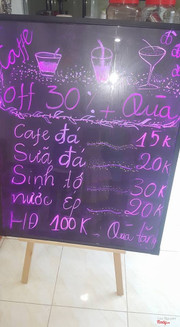 Caffe
off 30% + Quà
Cafe đá 15K
Sữa đá 20K
Sinh tố 30K
nước ép 20K
HĐ 100K Quà tặng